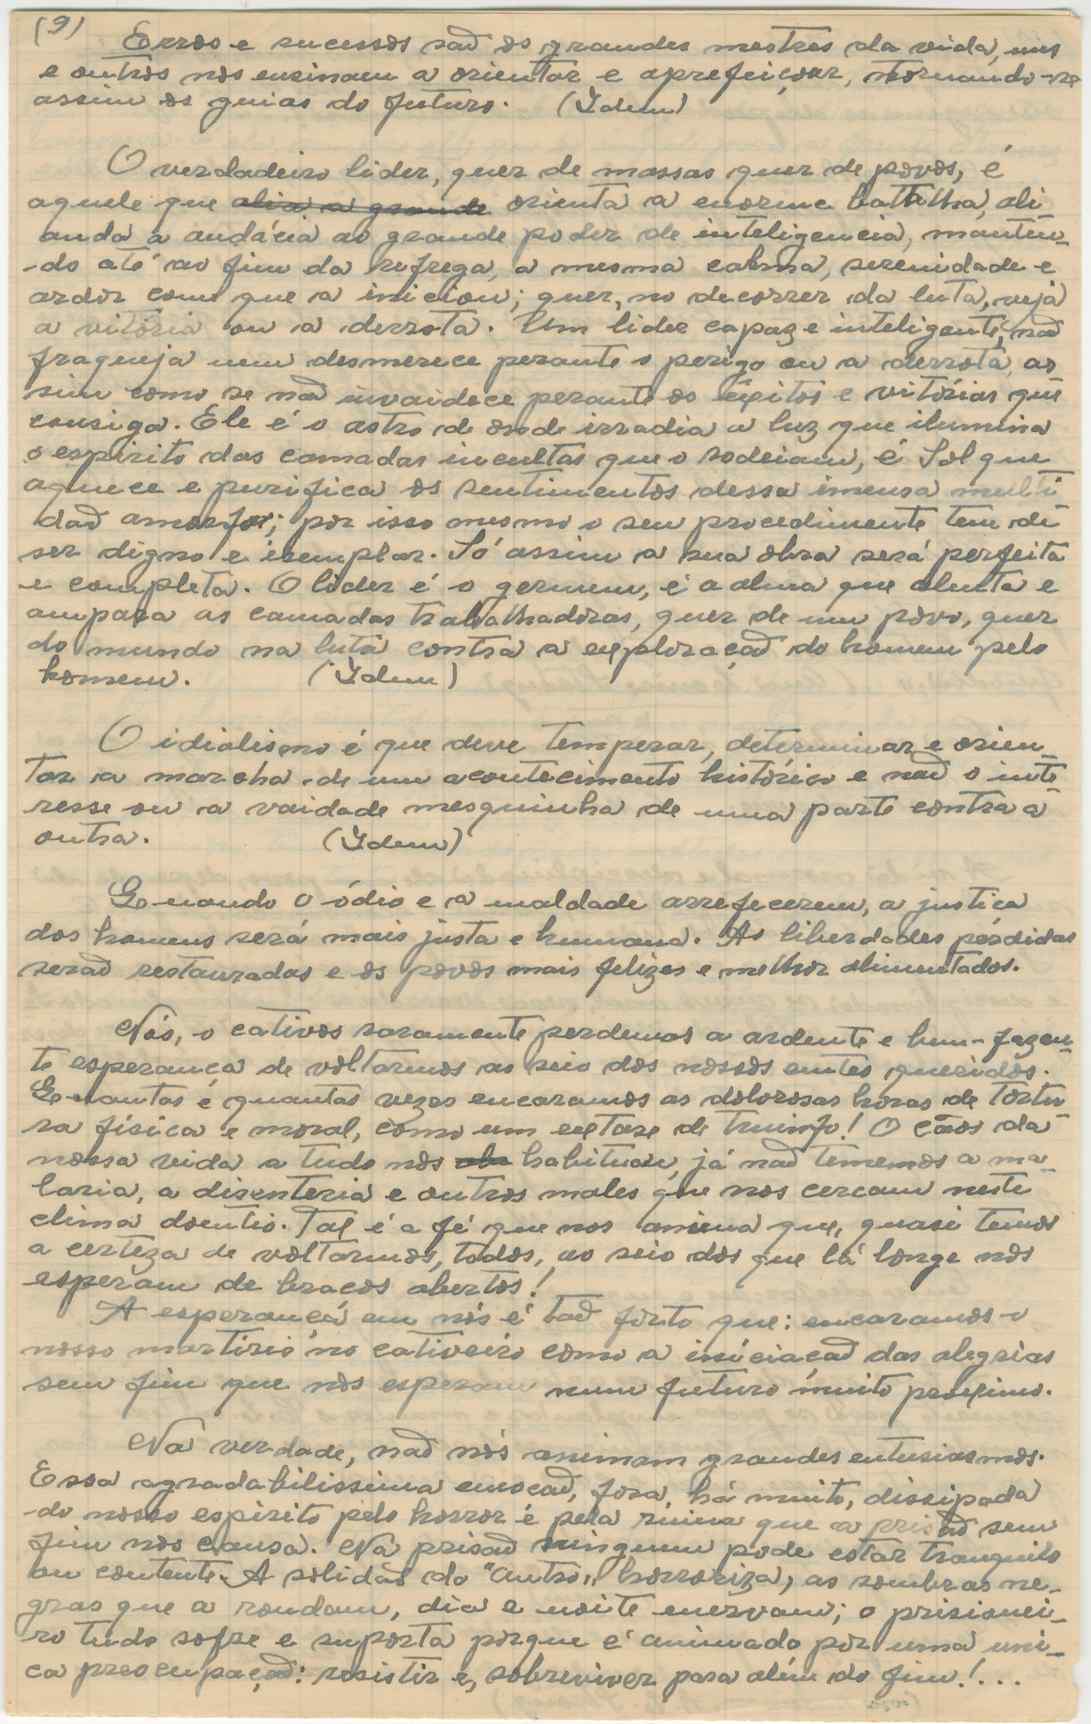 (9)
Erros e sucessos saõ os grandes mestres da vida, uns
e outros nos ensinam a orientar e aprefeiçoar, tornando-se
assim os guias do futuro. (Idem)
O verdadeiro lider, quer de massas quer de povos, é
aquele que alia a grande orienta a enorme batalha, ali-
ando a audácia ao grande poder de inteligencia, manten-
-do até ao fim da refrega, a mesma calma, serenidade e
ardor com que a iniciou; quer, no decorrer da luta, veja
a vitória ou a derrota. Um lider capaz e inteligente, naõ
fraqueja nem desmerece perante o perigo ou a derrota, as
sim como se naõ invaidece perante os êxitos e vitórias que
consiga. Ele é o astro de onde irradia a luz que ilumina
o espirito das camadas incultas que o rodeiam, é Sol que
aquece e purifica os sentimentos dessa imensa multi
daõ amorfa; por isso mesmo o seu procedimento tem de
ser digno e exemplar. Só assim a sua obra será perfeita
e completa. O lider é o germem, é a alma que alenta e
ampara as camadas trabalhadoras, quer de um povo, quer
do mundo na luta contra a exploraçaõ do homem pelo
homem. (Idem)
O idialismo é que deve temperar, determinar e orien-
tar a marcha de um acontecimento histórico e naõ o inte-
resse ou a vaidade mesquinha de uma parte contra a
outra. (Idem)
Quando o ódio e a maldade arrefecerem, a justiça
dos homens será mais justa e humana. As liberdades perdidas
seraõ restauradas e os povos mais felizes e melhor alimentados.
Nós, o cativos raramente perdemos a ardente e bem-fazen-
te esperança de voltarmos ao seio dos nossos entes queridos.
Quantas e quantas vezes encaramos as dolorosas horas de tortu
ra física e moral, como um extase de triunfo! O cãos da
nossa vida a tudo nos habituou, já naõ tememos a ma-
laria, a disenteria e outros males que nos cercam neste
clima doentio. Tal é a fé que nos anima que, quasi temos
a certeza de voltarmos, todos, ao seio dos que lá longe nos
esperam de braços abertos!
A esperança em nós é taõ forte que: encaramos o
nosso martirio no cativeiro como a iniciaçaõ das alegrias
sem fim que nos esperam num futuro muito proximo.
Na verdade, naõ nós animam grandes entusiasmos.
Essa agradabilissima emoçaõ, fora, há muito, dissipada
do nosso espirito pelo horror e pela ruina que a prisaõ sem
fim nos causa. Na prisaõ ninguem pode estar tranquilo
ou contente. A solidaõ do "antro" horroriza, as sombras ne-
gras que a rondam, dia e noite enervam; o prisionei-
ro tudo sofre e suporta porque é animado por uma uni-
ca preocupaçaõ: resistir e, sobreviver para além do fim!...